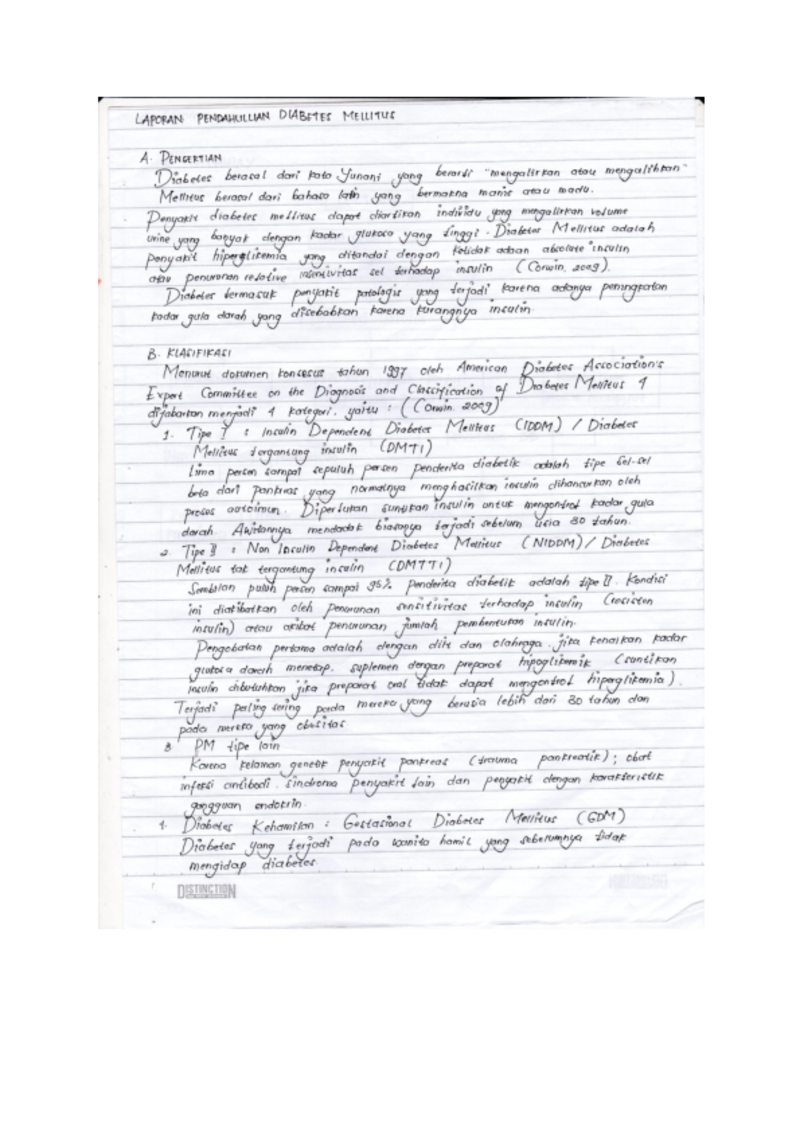 LAPORAN PENDAHULLIAN DIABETES MELLITUS
A. PENGERTIAN
Diabetes berasal dari kata Yunani yang berarti "mengalirkan atau mengalihkan"
Mellitus berasal dari bahasa latin yang bermakna manis atau madu.
Penyakit diabetes mellitus dapat diartikan individu yang mengalirkan volume
urine yang banyak dengan kadar glukosa yang tinggi. Diabetes Mellitus adalah
penyakit hiperglikemia yang ditandai dengan ketidak adaan absolute insulin
atau penurunan relative insensivitas sel terhadap insulin (Corwin, 2009).
Diabetes termasuk penyakit patologis yang terjadi karena adanya peningkatan
kadar gula darah yang disebabkan karena kurangnya insulin.
B. KLASIFIKASI
Menurut dokumen konsesus tahun 1997 oleh American Diabetes Association's
Expert Committee on the Diagnosis and Classification of Diabetes Mellitus 4
dijabarkan menjadi 4 kategori, yaitu : (Corwin. 2009)
1. Tipe I : Insulin Dependent Diabetes Mellitus (IDDM) / Diabetes
Mellitus tergantung insulin (DMTI)
Lima persen sampai sepuluh persen penderita diabetik adalah tipe Sel-sel
beta dari pankreas yang normalnya menghasilkan insulin dihancurkan oleh
proses autoimun. Diperlukan suntikan insulin untuk mengontrol kadar gula
darah. Awitannya mendadak biasanya terjadi sebelum usia 30 tahun.
2. Tipe II : Non Insulin Dependent Diabetes Mellitus (NIDDM) / Diabetes
Mellitus tak tergantung insulin (DMTTI)
Sembilan puluh persen sampai 95% penderita diabetik adalah tipe II. Kondisi
ini diakibatkan oleh penurunan sensitivitas terhadap insulin (resisten
insulin) atau akibat penurunan jumlah pembentukan insulin.
Pengobatan pertama adalah dengan diit dan olahraga. jika kenaikan kadar
glukosa darah menetap. suplemen dengan preparat hipoglikemik (suntikan
insulin dibutuhkan jika preparat oral tidak dapat mengontrol hiperglikemia).
Terjadi paling sering pada mereka yang berusia lebih dari 30 tahun dan
pada mereka yang obesitas
3 PM tipe lain
Karena kelainan genetik penyakit pankreas (trauma pankreatik); obat
infeksi antibodi. sindroma penyakit lain dan penyakit dengan karakteristik
gangguan endokrin.
4. Diabetes Kehamilan : Gestasional Diabetes Mellitus (GDM)
Diabetes yang terjadi pada wanita hamil yang sebelumnya tidak
mengidap diabetes.
DISTINCTION